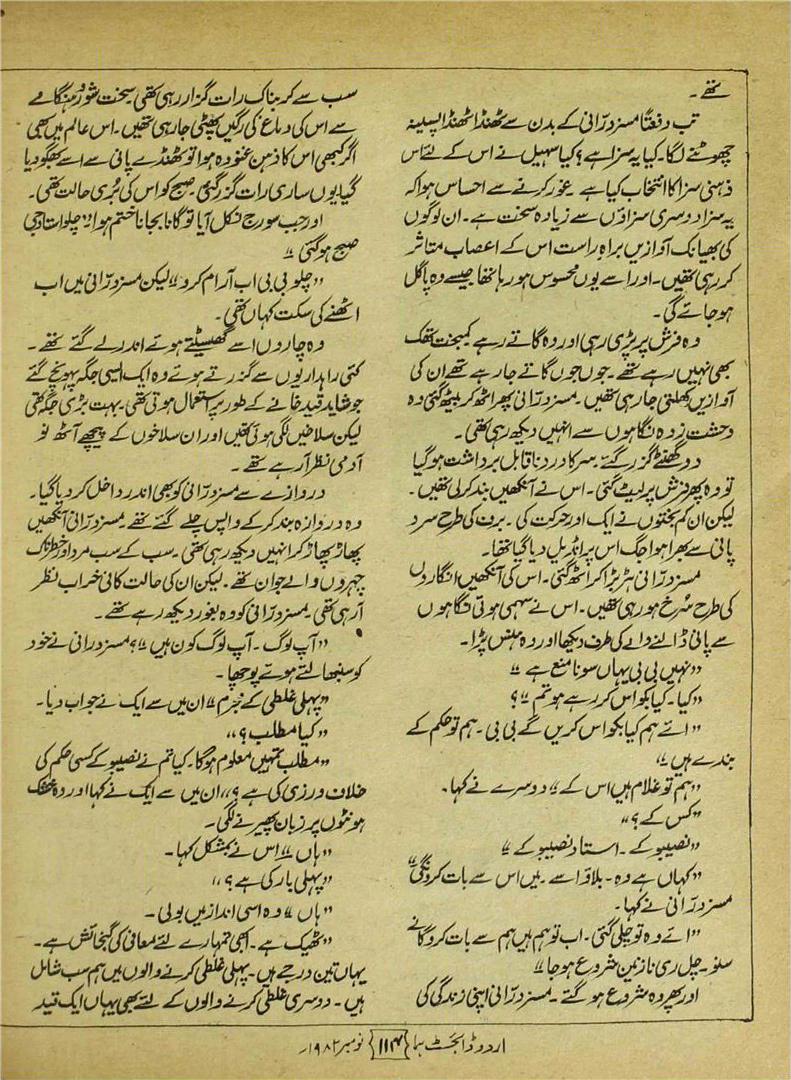 تھے۔
تب دفعتاً مسز درّانی کے بدن سے ٹھنڈا ٹھنڈا پسینہ
چھوٹنے لگا۔ کیا یہ سزا ہے؟ کیا سہیل نے اس کے لئے اس
ذہنی سزا کا انتخاب کیا ہے۔ غور کرنے سے احساس ہوا کہ
یہ سزا دوسری سزاؤں سے زیادہ سخت ہے۔ ان لوگوں
کی بھیانک آوازیں براہِ راست اس کے اعصاب متاثر
کر رہی تھیں۔ اور اسے یوں محسوس ہو رہا تھا جیسے وہ پاگل
ہو جائے گی۔
وہ فرش پر پڑی رہی اور وہ گاتے رہے کمبخت تھک
بھی نہیں رہے تھے۔ جوں جوں گاتے جا رہے تھے ان کی
آوازیں کھلتی جا رہی تھیں۔ مسز درّانی پھر اٹھ کر بیٹھ گئی وہ
وحشت زدہ نگاہوں سے انہیں دیکھ رہی تھی۔
دو گھنٹے گزر گئے۔ سر کا درد ناقابلِ برداشت ہو گیا
تو وہ پھر فرش پر لیٹ گئی۔ اس نے آنکھیں بند کر لی تھیں۔
لیکن ان کم بختوں نے ایک اور حرکت کی۔ برف کی طرح سرد
پانی سے بھرا ہوا جگ اس پر انڈیل دیا گیا تھا۔
مسز درّانی ہڑبڑا کر اٹھ گئی۔ اس کی آنکھیں انگاروں
کی طرح سُرخ ہو رہی تھیں۔ اس نے سہمی ہوئی نگاہوں
سے پانی ڈالنے والے کی طرف دیکھا اور وہ ہنس پڑا۔
”نہیں بی بی یہاں سونا منع ہے“
”کیا۔ کیا بکواس کر رہے ہو تم“؟
”ائے ہم کیا بکواس کریں گے بی بی۔ ہم تو حکم کے
بندے ہیں“
”ہم تو غلام ہیں اس کے“ دوسرے نے کہا۔
”کس کے؟“
”نصیبو کے۔ استاد نصیبو کے“
”کہاں ہے وہ۔ بلاؤ اسے۔ میں اس سے بات کرونگی“
مسز درّانی نے کہا۔
”ائے وہ تو چلی گئی۔ اب تو ہم ہیں ہم سے بات کرو گانے
سنو۔ چل ری نازنین شروع ہو جا“
اور پھر وہ شروع ہو گئے۔ مسز درّانی اپنی زندگی کی
سب سے کربناک رات گزار رہی تھی سخت شور و ہنگامے
سے اس کی دماغ کی رگیں پھٹی جا رہی تھیں۔ اس عالم میں بھی
اگر کبھی اس کا ذہن غنودہ ہوا تو ٹھنڈے پانی سے اسے بھگو دیا
گیا یوں ساری رات گزر گئی۔ صبح کو اس کی بُری حالت تھی۔
اور جب سورج نکل آیا تو گانا بجانا ختم ہوا۔ ”چلو استاد جی
صبح ہو گئی“
”چلو بی بی اب آرام کرو“ لیکن مسز درّانی میں اب
اٹھنے کی سکت کہاں تھی۔
وہ چاروں اسے گھسیٹتے ہوئے اندر لے گئے تھے۔
کئی راہداریوں سے گزرتے ہوئے وہ ایک ایسی جگہ پہونچ گئے
جو شاید قید خانے کے طور پر استعمال ہوتی تھی۔ بہت بڑی جگہ تھی
لیکن سلاخیں لگی ہوئی تھیں اور ان سلاخوں کے پیچھے آٹھ نو
آدمی نظر آ رہے تھے۔
دروازے سے مسز درّانی کو بھی اندر داخل کر دیا گیا۔
وہ دروازہ بند کر کے واپس چلے گئے تھے۔ مسز درّانی آنکھیں
پھاڑ پھاڑ کر انہیں دیکھ رہی تھی۔ سب کے سب مرد اور خطرناک
چہروں والے جوان تھے۔ لیکن ان کی حالت کافی خراب نظر
آ رہی تھی۔ مسز درّانی کو وہ بغور دیکھ رہے تھے۔
”آپ لوگ۔ آپ لوگ کون ہیں“؟ مسز درانی نے خود
کو سنبھالتے ہوئے پوچھا۔
”پہلی غلطی کے مجرم“ ان میں سے ایک نے جواب دیا۔
”کیا مطلب؟“
”مطلب تمہیں معلوم ہو گا۔ کیا تم نے نصیبو کے کسی حکم کی
خلاف ورزی کی ہے؟“ ان میں سے ایک نے کہا اور وہ خشک
ہونٹوں پر زبان پھیرنے لگی۔
”ہاں“ اس نے بمشکل کہا۔
”پہلی بار کی ہے؟“
”ہاں“ وہ اسی انداز میں بولی۔
”ٹھیک ہے۔ ابھی تمہارے لئے معافی کی گنجائش ہے۔
یہاں تین درجے ہیں۔ پہلی غلطی کرنے والوں میں ہم سب شامل
ہیں۔ دوسری غلطی کرنے والوں کے لئے بھی یہاں ایک قید
اردو ڈائجسٹ ہما {۱۱۴} نومبر ۱۹۸۲ء